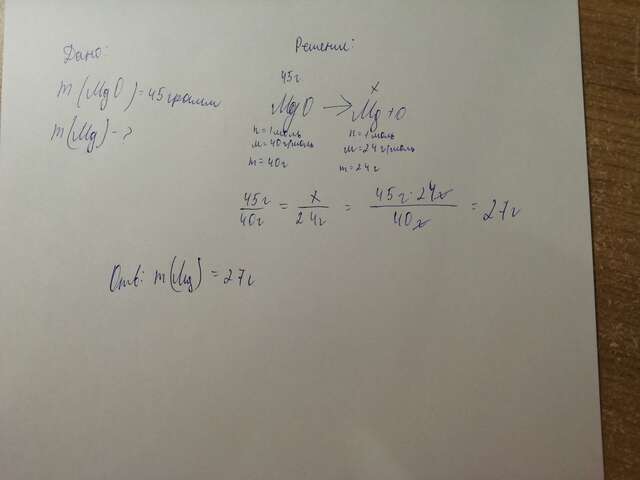 Дано:
m(MgO)=45грамм
m(Mg)-?
Решение:
45г x
MgO → Mg+O
n=1моль n=1моль
M=40г/моль M=24г/моль
m=40г m=24г
45г/40г = x/24г = 45г·24г/40г = 27г
Отв: m(Mg)=27г